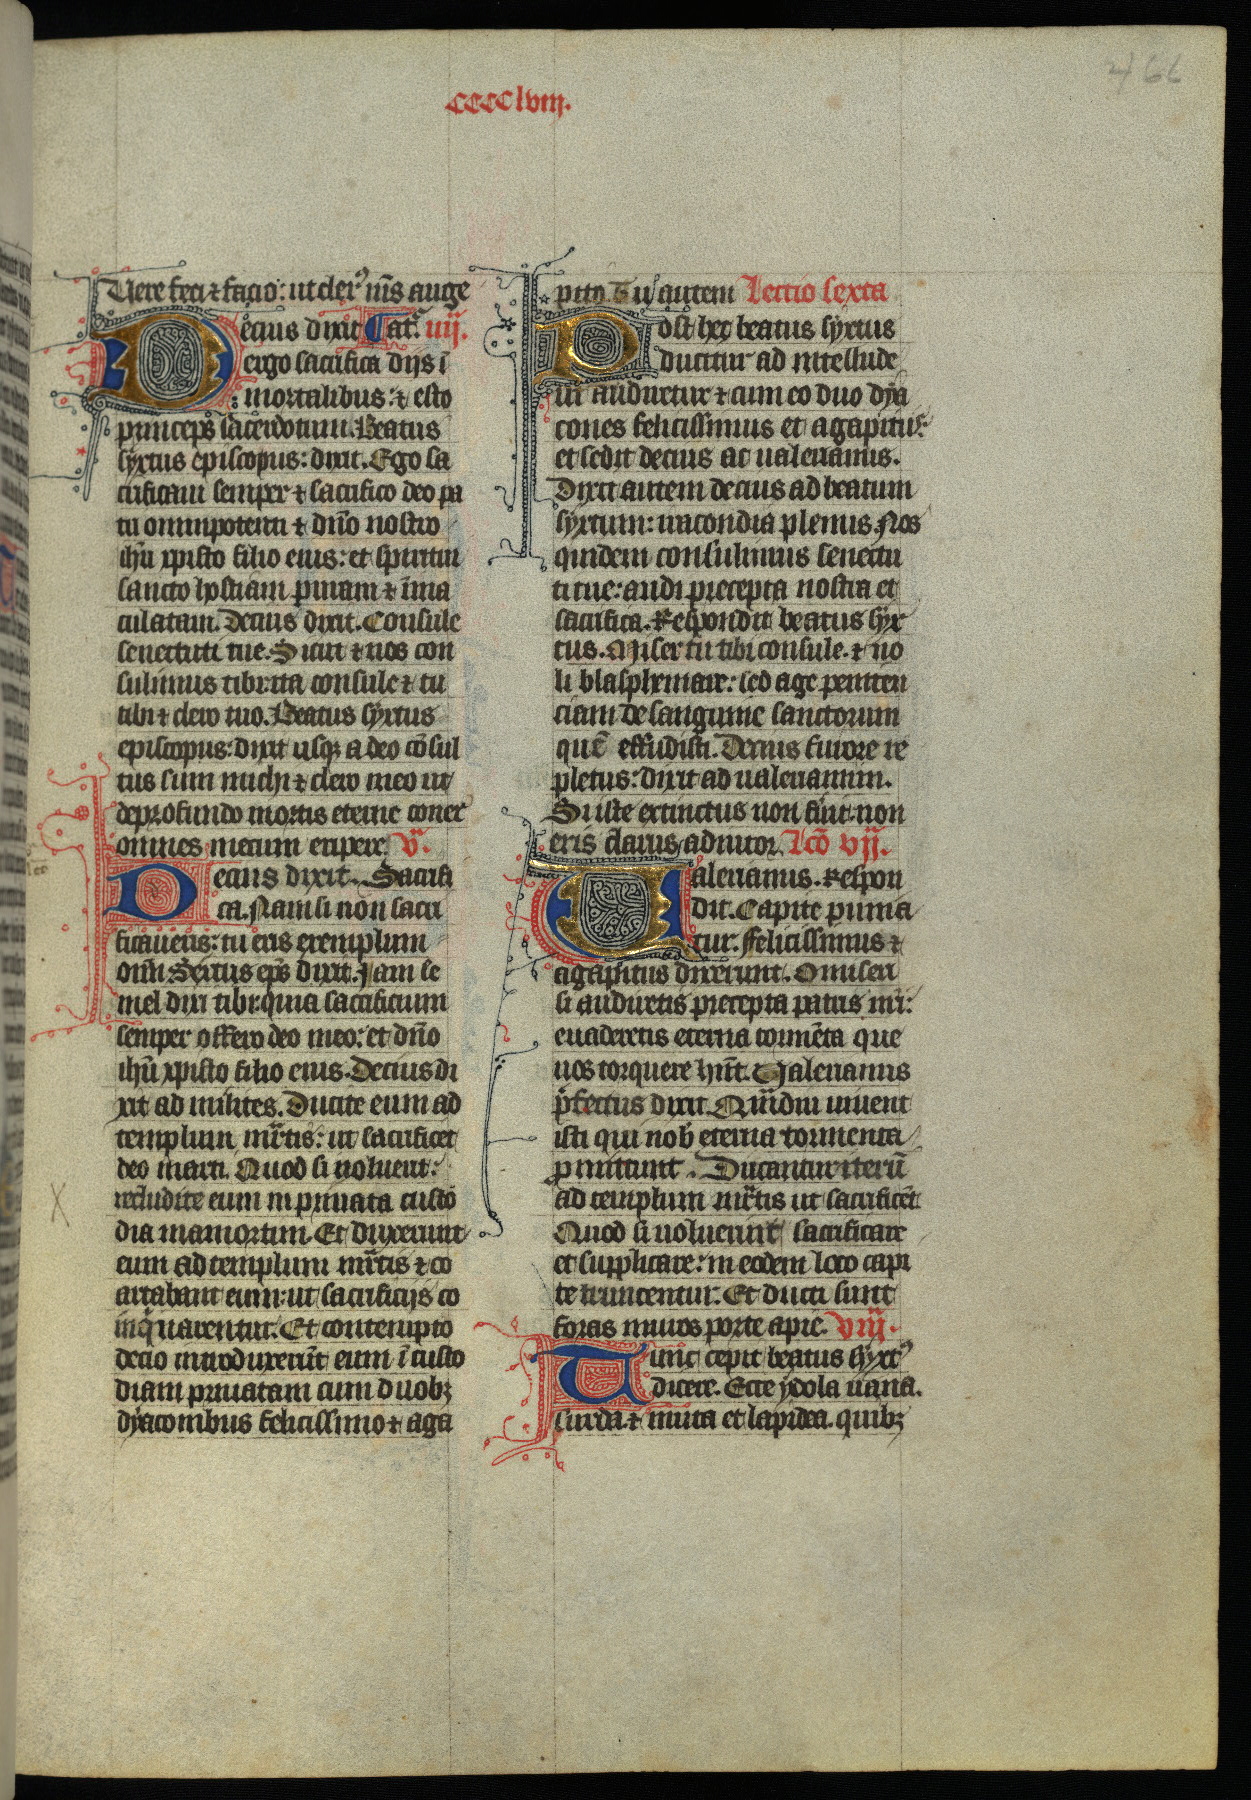 CCCClviij.
466
Vere feci ⁊ facio: ut clerꝰ mẽs auge
Decius dixit Cat᷑. iiij.
ergo sacrifica dijs ĩ
mortalibus: ⁊ esto
princeps sacerdotum. Beatus
syxtus episcopus: dixit. Ego sa
crificaui semper ⁊ sacrifico deo pa
tri omnipotenti ⁊ dño nostro
ihũ xpisto filio eius: et spiritui
sancto hostiam puram ⁊ ĩma
culatam. Decius dixit. Consule
senectuti tue. Sicut ⁊ nos con
sulimus tibi: ita consule ⁊ tu
tibi ⁊ clero tuo. Beatus syxtus
episcopus: dixit usqꝫ adeo cõsul
tus sum michi ⁊ clero meo ut
de profundo mortis eterne coner
omnes mecum eripere. v.
Decius dixit. Sacrifi
ca. Nam si non sacri
ficaueris: tu eris exemplum
om̃i. Sixtus ep̃s dixit. Jam se
mel dixi tibi: quia sacrificium
semper offero deo meo: et dño
ihũ xpisto filio eius. Decius di
xit ad milites. Ducite eum ad
templum mr̃tis: ut sacrificet
deo marti. Quod si noluerit:
recludite eum in priuata custo
dia mamortini. Et duxerunt
eum ad templum mr̃tis ⁊ co
artabant eum: ut sacrificijs co
inq̃narentur. Et contempto
decio introduxerũt eum ĩ custo
diam priuatam cum duobꝫ
dyaconibus felicissimo ⁊ aga
pito. Tu autem Lectio sexta
Post hec beatus syxtus
ducitur ad
ui auditur ⁊ cum eo duo dya
cones felicissimus et agapitus
et sedit decius ac ualerianus.
Dixit autem decius ad beatum
syxtum: iracondia plenus. Nos
quidem consulimus senectu
ti tue: audi precepta nostra et
sacrifica. Respondit beatus syx
tus. Miser tu tibi consule. ⁊ no
li blasphemare: sed age peniten
ciam de sanguine sanctorum
quẽ effudisti. Decius furore re
pletus: dixit ad ualerianum.
Si iste extinctus non fũit: non
eris clarus adiutor. Lc̃o vij.
Valerianus. Respon
dit. Capite punia
tur. Felicissimus ⁊
agapitus dixerunt. O miseri
si audiretis precepta patris nr̃i:
euaderetis eterna tormẽta que
uos torquere hñt. Valerianus
p̃fectus dixit. Quĩdiu uiuent
isti qui nob̃ eterna tormenta
promittunt. Ducantur iterũ
ad templum mr̃tis ut sacrificẽt
Quod si noluerint sacrificare
et supplicare: in eodem loco capi
te truncentur. Et ducti sunt
foras muros porte apie. viij.
Tunc cepit beatus syxtꝰ
dicere. Ecce ydola uana.
surda ⁊ muta et lapidea. quibꝫ